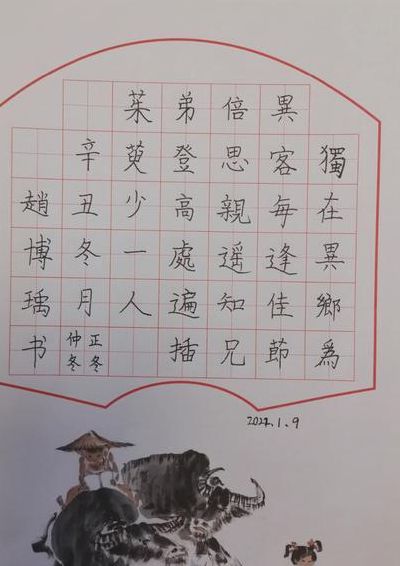 獨在異鄉為
異客每逢佳節
倍思親遥知兄
弟登高處遍插
茱萸少一人
辛丑冬月
正冬
仲冬
趙博瑀书
2022.1.9